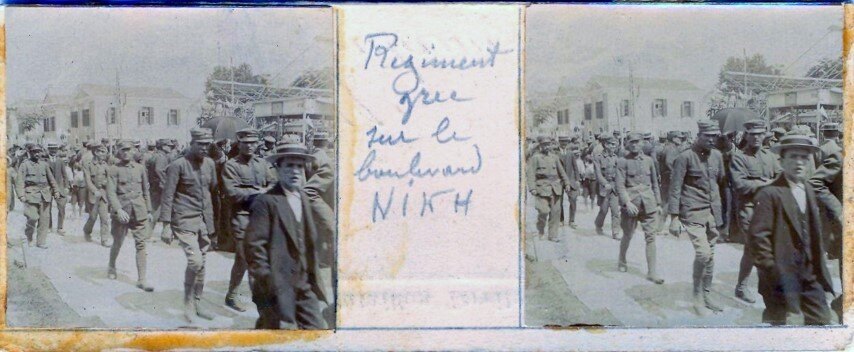 Régiment
grec
sur le
boulevard
NIKH